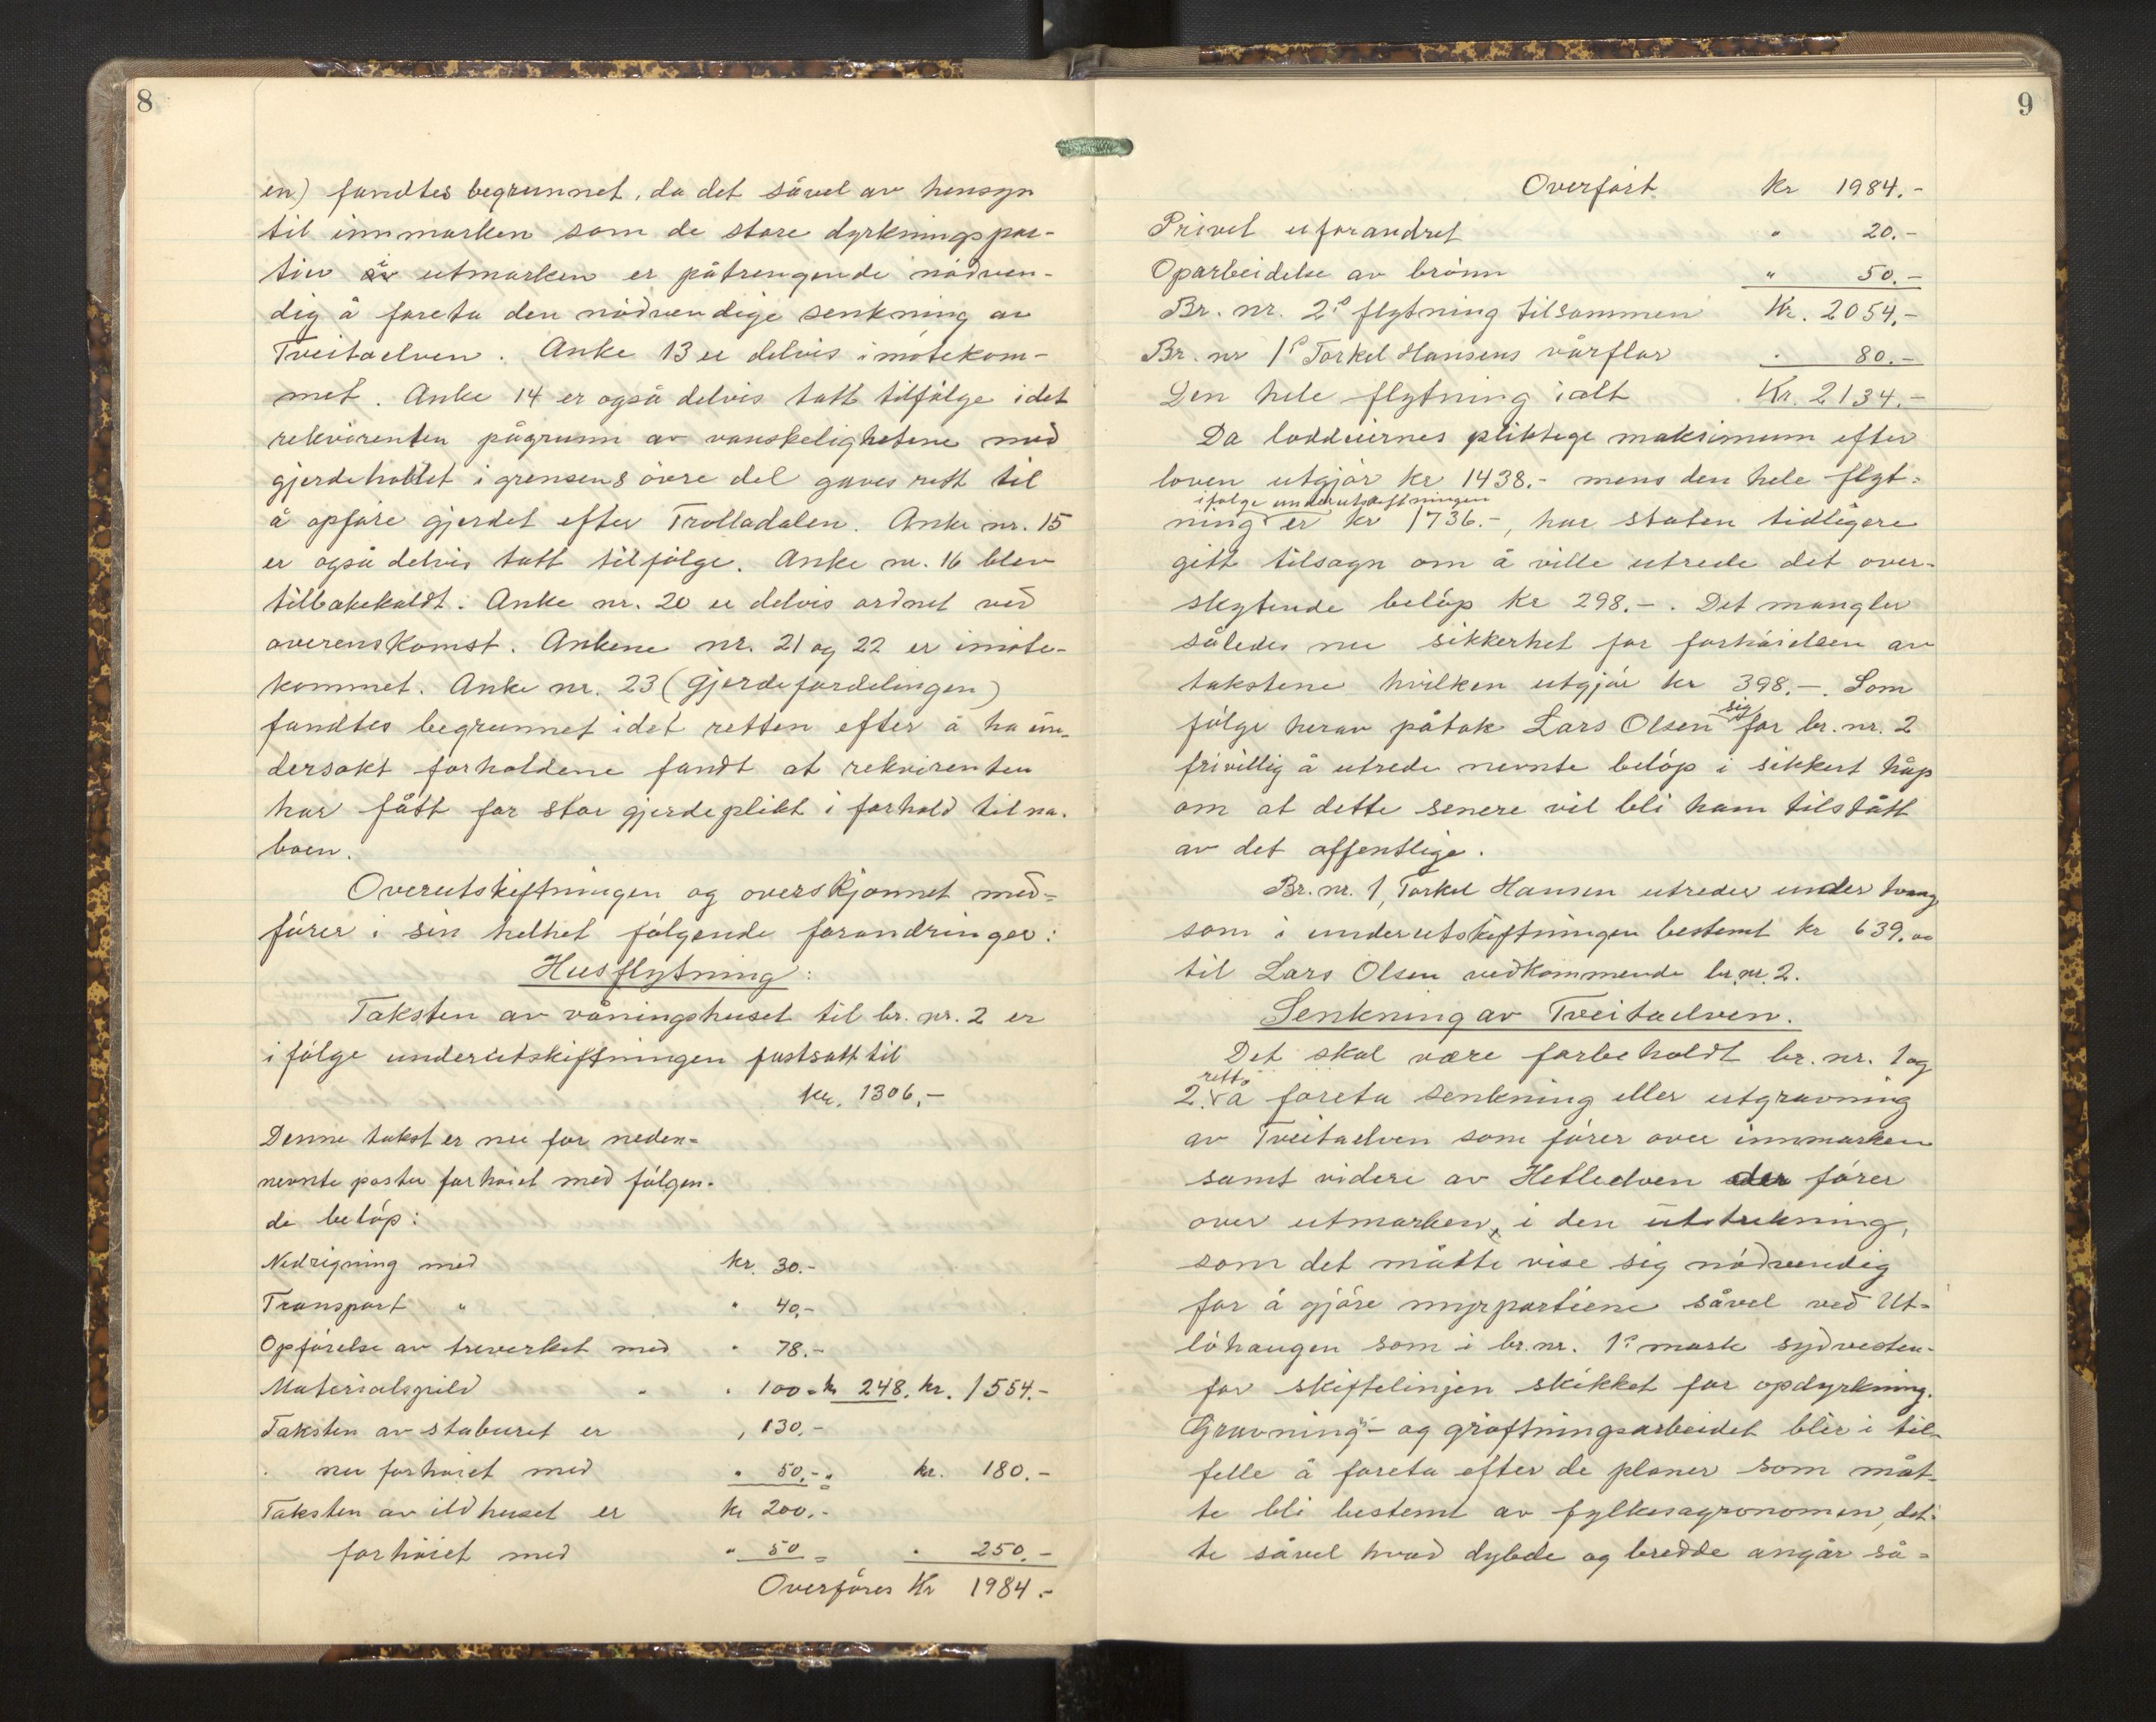 8
en) fandtes begrunnet, da det såvel av hensyn
til innmarken som de store dyrkningspar-
tier i utmarken er påtrengende nödven-
dig å foreta den nödvendige senkning av
Tveitaelven. Anke 13 er delvis imötekom-
met. Anke 14 er også delvis tatt tilfölge idet
rekvirenten pågrunn av vanskelighetene med
gjerdeholdet i grensens övre del gaves rett til
å opföre gjerdet efter Trolladalen. Anke nr. 15
er også delvis tatt tilfölge. Anke nr. 16 blev
tilbakekaldt. Anke nr. 20 er delvis ordnet ved
overenskomst. Ankene nr. 21 og 22 er imöte-
kommet. Anke nr. 23 (gjerdefordelingen)
fandtes begrunnet idet retten efter å ha un-
dersökt forholdene fandt at rekvirenten
har fått for stor gjerdeplikt i forhold til na-
boen.
Overutskiftningen og overskjönnet med-
förer i sin helhet fölgende forandringer:
Husflytning:
Taksten av våningshuset til br. nr. 2 er
ifölge underutskiftningen fastsatt til
kr. 1306,-
Denne takst er nu for neden-
nevnte poster forhöiet med fölgen-
de belöp:
Nedrigning med kr. 30.-
Transport " " 40,-
Opförelse av treverket med " 78.-
Materialspild " " 100 = kr 248. kr. 1554.-
Taksten av staburet er , 130,-
nu forhöiet med " 50,- = kr. 180.-
Taksten av ildhuset er kr 200,-
forhöiet med " 50 = " 250.-
Overföres Kr 1984.-
9
Overfört. Kr 1984.-
Privet uforandret " 20.-
Oparbeidelse av brönn " 50.-
Br. nr. 2s flytning tilsammen Kr. 2054,-
Br. nr 1s Torkel Hansens vårflor " 80.-
Den hele flytning ialt Kr. 2134.-
Da loddeiernes pliktige maksimum efter
loven utgjör kr 1438.- mens den hele flyt-
ifölge underutskiftningen
ning er kr 1736.-, har staten tidligere
gitt tilsagn om å ville utrede det over-
skytende belöp kr 298.-. Det mangler
således nu sikkerhet for forhöielsen av
takstene hvilken utgjör kr 398.-. Som
fölge herav påtok Lars Olsen sig for br. nr. 2
frivillig å utrede nevnte belöp i sikkert håp
om at dette senere vil bli ham tilstått
av det offentlige.
Br. nr. 1, Torkel Hansen utreder under tvang
som i underutskiftningen bestemt kr 639.00
til Lars Olsen vedkommende br. nr. 2.
Senkning av Tveitaelven.
Det skal være forbeholdt br. nr. 1 og
2 rett å foreta senkning eller utgravning
av Tveitaelven som förer over innmarken
samt videre av Hetleelven der förer
over utmarken, i den utstrekning,
som det måtte vise sig nödvendig
for å gjöre myrpartiene såvel ved Ut-
löhaugen som i br. nr. 1s mark sydvesten-
for skiftelinjen skikket for opdyrkning.
Gravning's- og gröftningsarbeidet blir i til-
felle å foreta efter de planer som måt-
te bli bestemt av fylkesagronomen, det-
te såvel hvad dybde og bredde angår så-